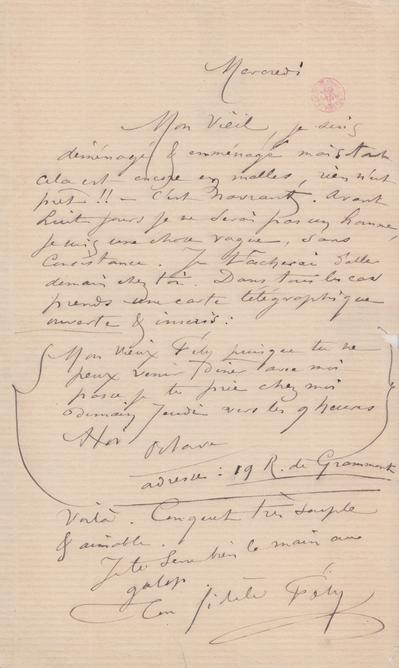 Mercredi
Mon Vieil, je suis
déménagé & emménagé mais tout
cela est encore en malles, rien n'est
prêt !! — c'est navrant. Avant
huit jours je ne serai pas un homme,
je suis une chose vague, sans
consistance. Je tâcherai d'aller
demain chez toi. Dans tous les cas
prends une carte télégraphique
ouverte & inscris :
Mon vieux Fély puisque tu ne
peux venir dîner avec moi
passe je te prie chez moi
demain Jeudi vers les 9 heures
Octave
adresse : 19 R. de Grammont
Voilà. Conquet très souple
& aimable.
Je te serre bien la main au
galop
Ton fidèle Fély